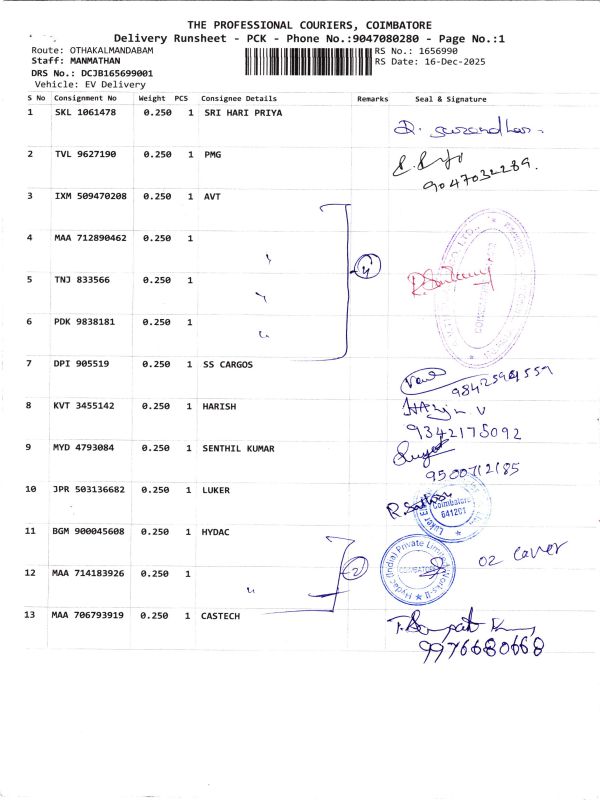 THE PROFESSIONAL COURIERS, COIMBATORE
Delivery Runsheet - PCK - Phone No.:9047080280 - Page No.:1
Route: OTHAKALMANDABAM RS No.: 1656990
Staff: MANMATHAN RS Date: 16-Dec-2025
DRS No.: DCJB165699001
Vehicle: EV Delivery
S No Consignment No Weight PCS Consignee Details Remarks Seal & Signature
1 SKL 1061478 0.250 1 SRI HARI PRIYA
2 TVL 9627190 0.250 1 PMG
9047032289.
3 IXM 509470208 0.250 1 AVT
4 MAA 712890462 0.250 1 "
4
5 TNJ 833566 0.250 1 "
6 PDK 9838181 0.250 1 "
7 DPI 905519 0.250 1 SS CARGOS
8 KVT 3455142 0.250 1 HARISH
9342175092
9 MYD 4793084 0.250 1 SENTHIL KUMAR
9500712185
10 JPR 503136682 0.250 1 LUKER
Coimbatore
641201
11 BGM 900045608 0.250 1 HYDAC
Hydac (India) Private Limited
COIMBATORE
02 cover
12 MAA 714183926 0.250 1 "
2
13 MAA 706793919 0.250 1 CASTECH
9976680668